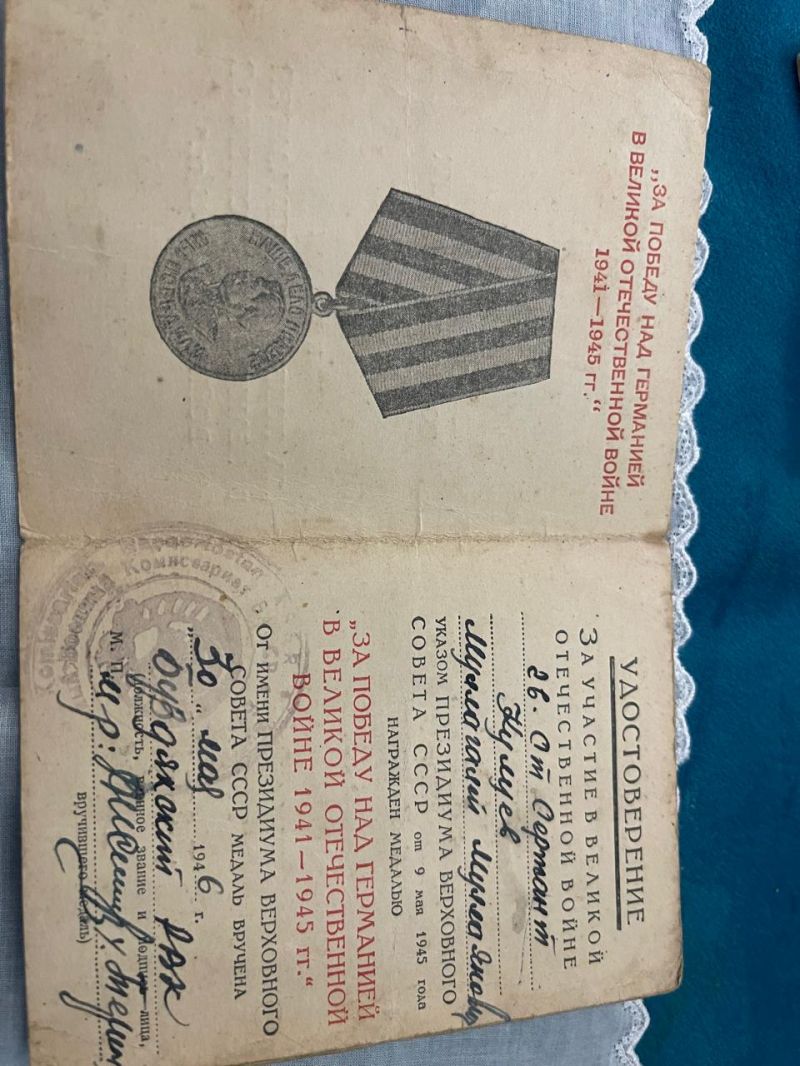 „ЗА ПОБЕДУ НАД ГЕРМАНИЕЙ
В ВЕЛИКОЙ ОТЕЧЕСТВЕННОЙ ВОЙНЕ
1941—1945 гг.“
НАШЕ ДЕЛО ПРАВОЕ
УДОСТОВЕРЕНИЕ
ЗА УЧАСТИЕ В ВЕЛИКОЙ
ОТЕЧЕСТВЕННОЙ ВОЙНЕ
гв. Ст Сержант
Кулуев
Муллагали
УКАЗОМ ПРЕЗИДИУМА ВЕРХОВНОГО
СОВЕТА СССР от 9 мая 1945 года
НАГРАЖДЕН МЕДАЛЬЮ
„ЗА ПОБЕДУ НАД ГЕРМАНИЕЙ
В ВЕЛИКОЙ ОТЕЧЕСТВЕННОЙ
ВОЙНЕ 1941—1945 гг.“
От ИМЕНИ ПРЕЗИДИУМА ВЕРХОВНОГО
СОВЕТА СССР МЕДАЛЬ ВРУЧЕНА
„30“ мая 1946 г.
РВК
М. П. должность, звание и подпись лица,
вручившего медаль)
Комиссариат